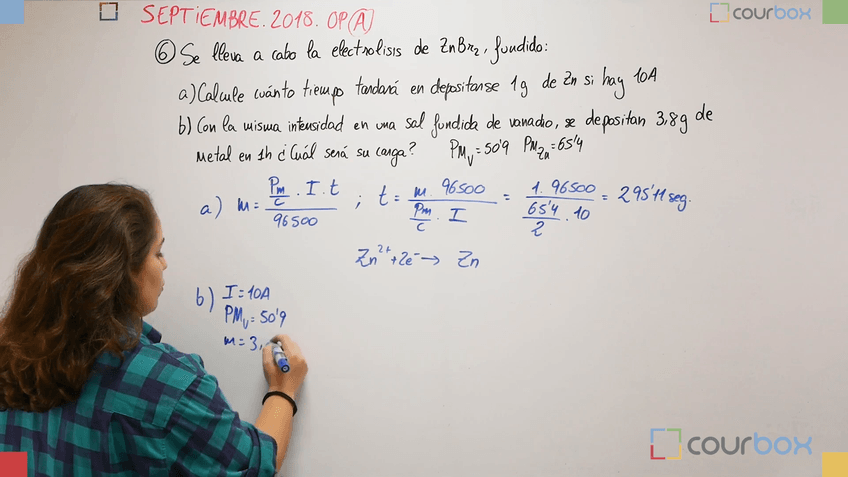 SEPTIEMBRE. 2018. OP(A)
courbox
⑥ Se lleva a cabo la electrolisis de ZnBr₂, fundido:
a) Calcule cuánto tiempo tardará en depositarse 1g de Zn si hay 10A
b) Con la misma intensidad en una sal fundida de vanadio, se depositan 3,8g de
metal en 1h ¿Cuál será su carga? PM_V = 50'9 PM_Zn = 65'4
a) m = (Pm/c · I · t)/96500 ; t = (m · 96500)/(Pm/c · I) = (1 · 96500)/(65'4/2 · 10) = 295'11 seg.
Zn²⁺ + 2e⁻ → Zn
b) I = 10A
PM_V = 50'9
m = 3,
courbox